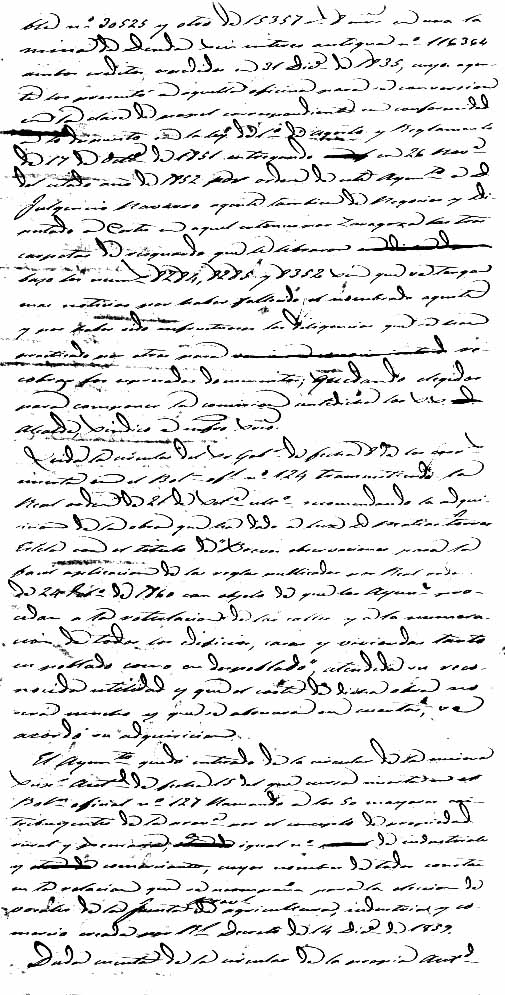 bla nº 30525 y otro de 15357 a 8 en una la
misma de deuda sin interes antigua nº 116364
ambos creditos, vencidos en 31 Dice. de 1835, cuyo
los presento a aquella oficina para su conversion
en la clase de papel correspondiente en conformidad
a lo dispuesto en la ley de 1º de Agosto y Reglamento
de 17 de Octe. de 1851 entregando en 26 Nove.
del citado año de 1852 por orden de este Ayunto. a d.
Fulgencio Navarro agente tambien de Negocios y Di-
putado a Cortes en aquel entonces por Zaragoza las tres
carpetas de resguardo que le libraron
bajo los num. 8284, 8285 y 8352 sin que se tengan
mas noticias por haber fallecido el nombrado agente
y por haber sido infructuosas las diligencias que se han
practicado por otros para re-
cobrar los espresados documentos; quedando elegidos
para componer la comision los Sres.
Alcalde, Sindico
Vista la circular del Sr. Gobr. de fecha
en el Boln. ofl. nº 124 transmitiendo la
Real orden de 21 de recomendando la adqui-
sicion de la obra que ha dado a luz d.
con el titulo de Breves observaciones para la
facil aplicacion de las reglas publicadas por Real orden
de 24 Febo. de 1860 con objeto de que los Ayuntos. pro-
cedan a la rotulacion de las calles y a la numera-
cion de todos los edificios, casas y viviendas tanto
en poblado como en despoblado, atendida su reco-
nocida utilidad y que el coste de dicha obra no
es mucho y que se abonara en cuentas, se
acordó su adquisicion.
El Ayunto. quedó enterado de la circular de la misma
Supr. Autd. de fecha 15 del que cursa inserta en el
Boln. oficial nº 127 llamando a los 50 mayores con-
tribuyentes de la prova. por el concepto de propiedad
rural y pecuaria, igual nº de industriales
y comerciantes, cuyos nombres de todos constan
en la relacion que se acompaña para la eleccion de
vocales de la Junta de agricultura, industria y co-
mercio creada por Rl. Decreto de 14 Dice. de 1859.
Dada cuenta de la circular de la propia Autd.